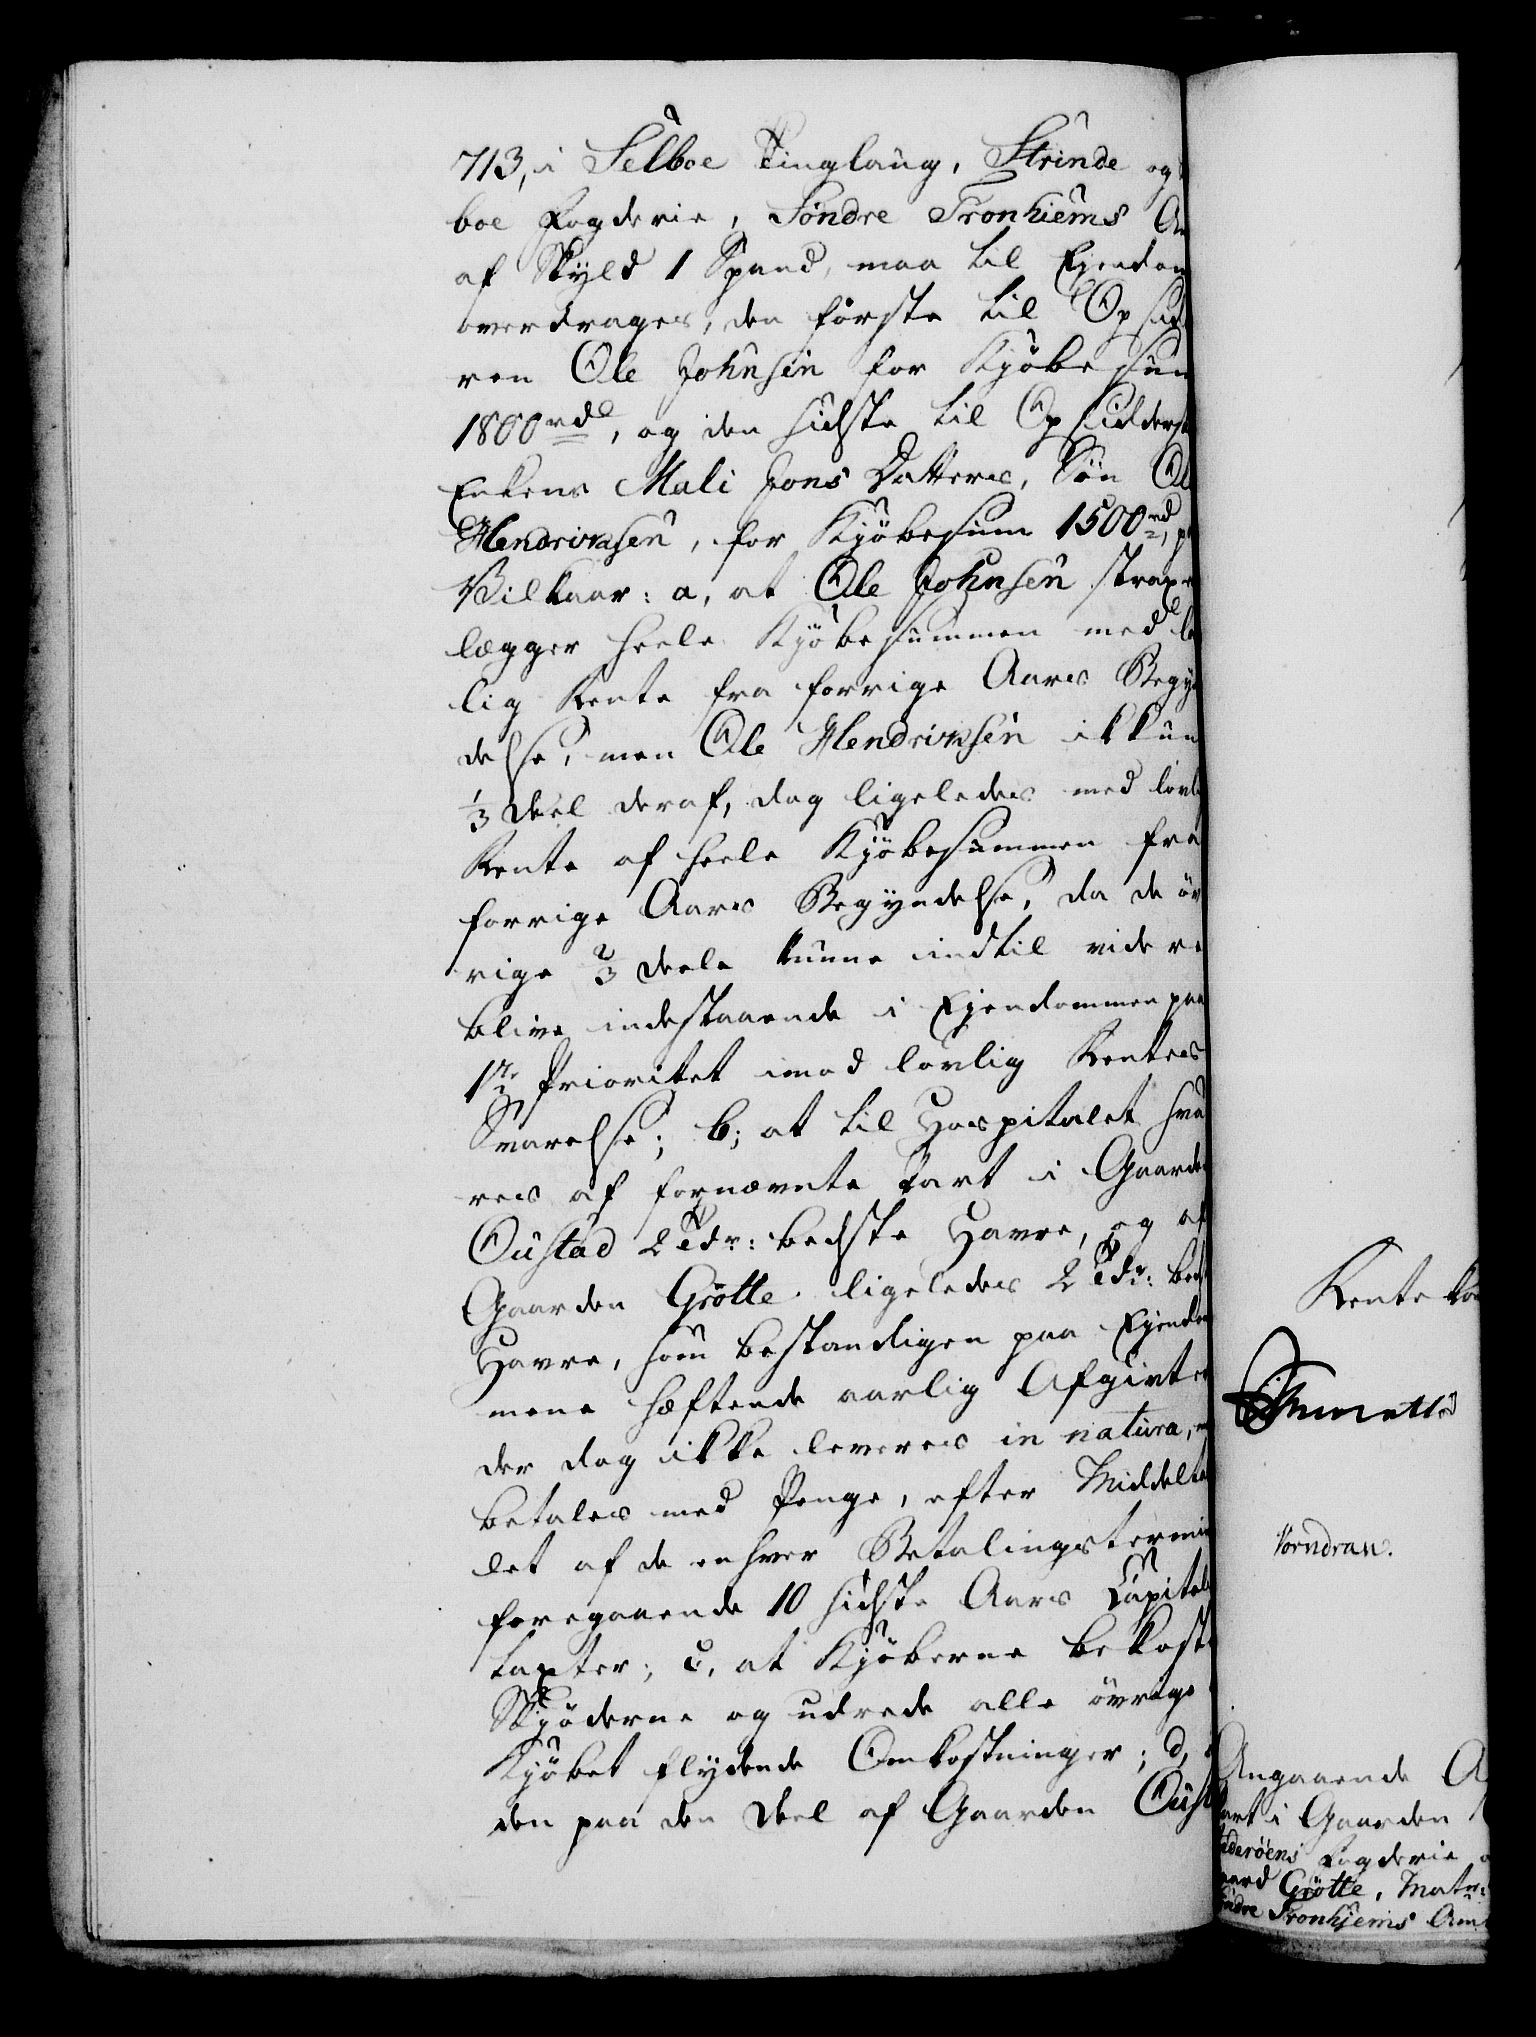 713, i Selboe Tinglaug, Strinde og
boe Fogderie, Söndre Tronhiems
af Skyld 1 Spand, maa til Eiendom
overdrages, den förste til Opsid
ren Ole Johnsen for Kjöbesum
1800 rd, og den sidste til Opsidderst
Enkens Mali Jons Datters, Sön Ol
Hendricksen, for Kjöbesum 1500 rd,
Vilkaar: a, at Ole Johnsen strax
lægger heele Kjöbesummen med
lig Rente fra forrige Aars Begyn
delse, men Ole Hendricksen ikkun
1/3 Deel deraf, dog ligeledes med lovl
Rente af heele Kjöbesummen fra
forrige Aars Begyndelse, da de öv
rige 2/3 Deele kunne indtil videre
blive indestaaende i Eiendommen paa
1te Prioritet imod lovlig Rentes
Svarelse; b; at til Hospitalet sva
res af fornævnte Part i Gaarden
Oustad 2 Tdr: bedste Havre, og af
Gaarden Grötte ligeledes 2 Tdr: beds
Havre, som bestandigen paa Eiendom
mene hæftende aarlig Afgivter
der dog ikke leveres in natura,
betales med Penge, efter Middelta
let af de enhver Betalingstermin
foregaaende 10 sidste Aars Capitels
taxter; c, at Kjöberne bekoste
Skjöderne og udrede alle övrige
Kjöbet flydende Omkostninger; d,
den paa den Deel af Gaarden Oust
Rentekam
Vorndran.
Angaaende A
Part i Gaarden
Inderöens Fogderie
Gaard Grötte, Matr:
Söndre Tronhjems Amt